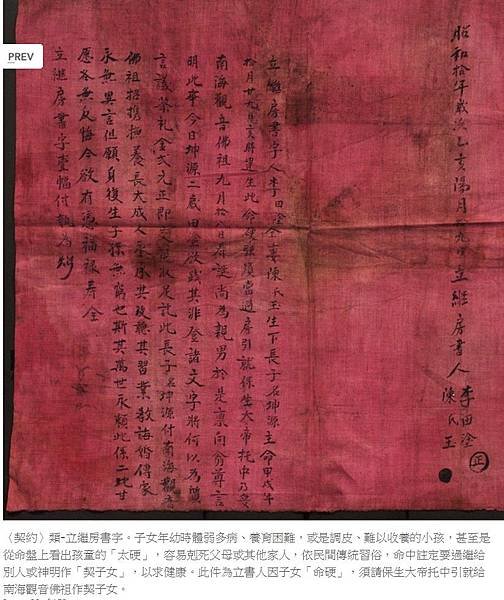 PREV
昭和拾年歲次乙亥陽月 九日立繼房書人 李田塗
陳氏玉
正
立繼房書字人李田塗仝妻陳氏玉生下長子名坤源主命甲戌年
拾月廿九日亥時建生此命硬強須當過房引就保生大帝托中乃与
南海觀音佛祖九月拾九日壽誕尚為親男於是禀向翁尊言
明此事今日坤源二歲田塗欲践其非登諸文字將何以為憑
言議茶礼金弍元正即交 取足訖此長子名坤源付南海觀音
佛祖招携抱養長大成人永承其 聽其習業教誨婚傳家
永無異言但願身後生子孫無窮也斯其萬世永賴此係二比甘
愿各無反悔今欲有憑福禄寿全
立继房書字壹幅付執為炤
〈契約〉類-立繼房書字。子女年幼時體弱多病、養育困難，或是調皮、難以收養的小孩，甚至是
從命盤上看出孩童的「太硬」，容易剋死父母或其他家人，依民間傳統習俗，命中註定要過繼給
別人或神明作「契子女」，以求健康。此件為立書人因子女「命硬」，須請保生大帝托中引就給
南海觀音佛祖作契子女。